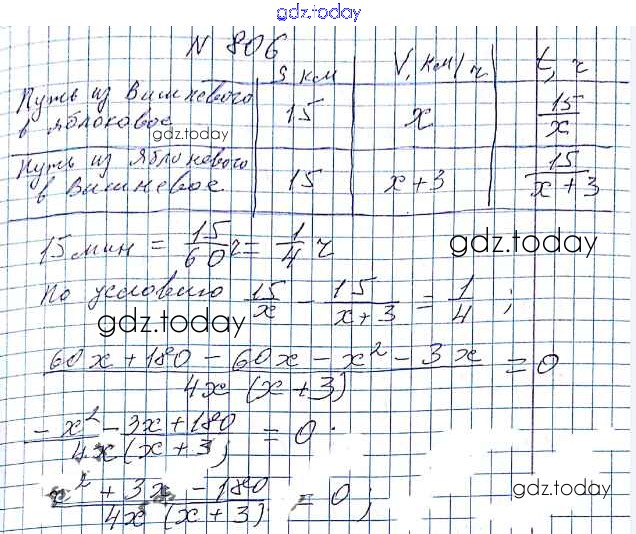 gdz.today
N 806
S км V, км/ч t, ч
Путь из Вишневого
в Яблоковое 15 x 15/x
gdz.today
Путь из Яблоневого
в Вишневое 15 x+3 15/(x+3)
15 мин = 15/60 ч = 1/4 ч
gdz.today
По условию 15/x - 15/(x+3) = 1/4 ;
gdz.today
(60x + 180 - 60x - x² - 3x)/(4x (x+3)) = 0
(-x² - 3x + 180)/(4x (x+3)) = 0 ;
(x² + 3x - 180)/(4x (x+3)) = 0 ;
gdz.today